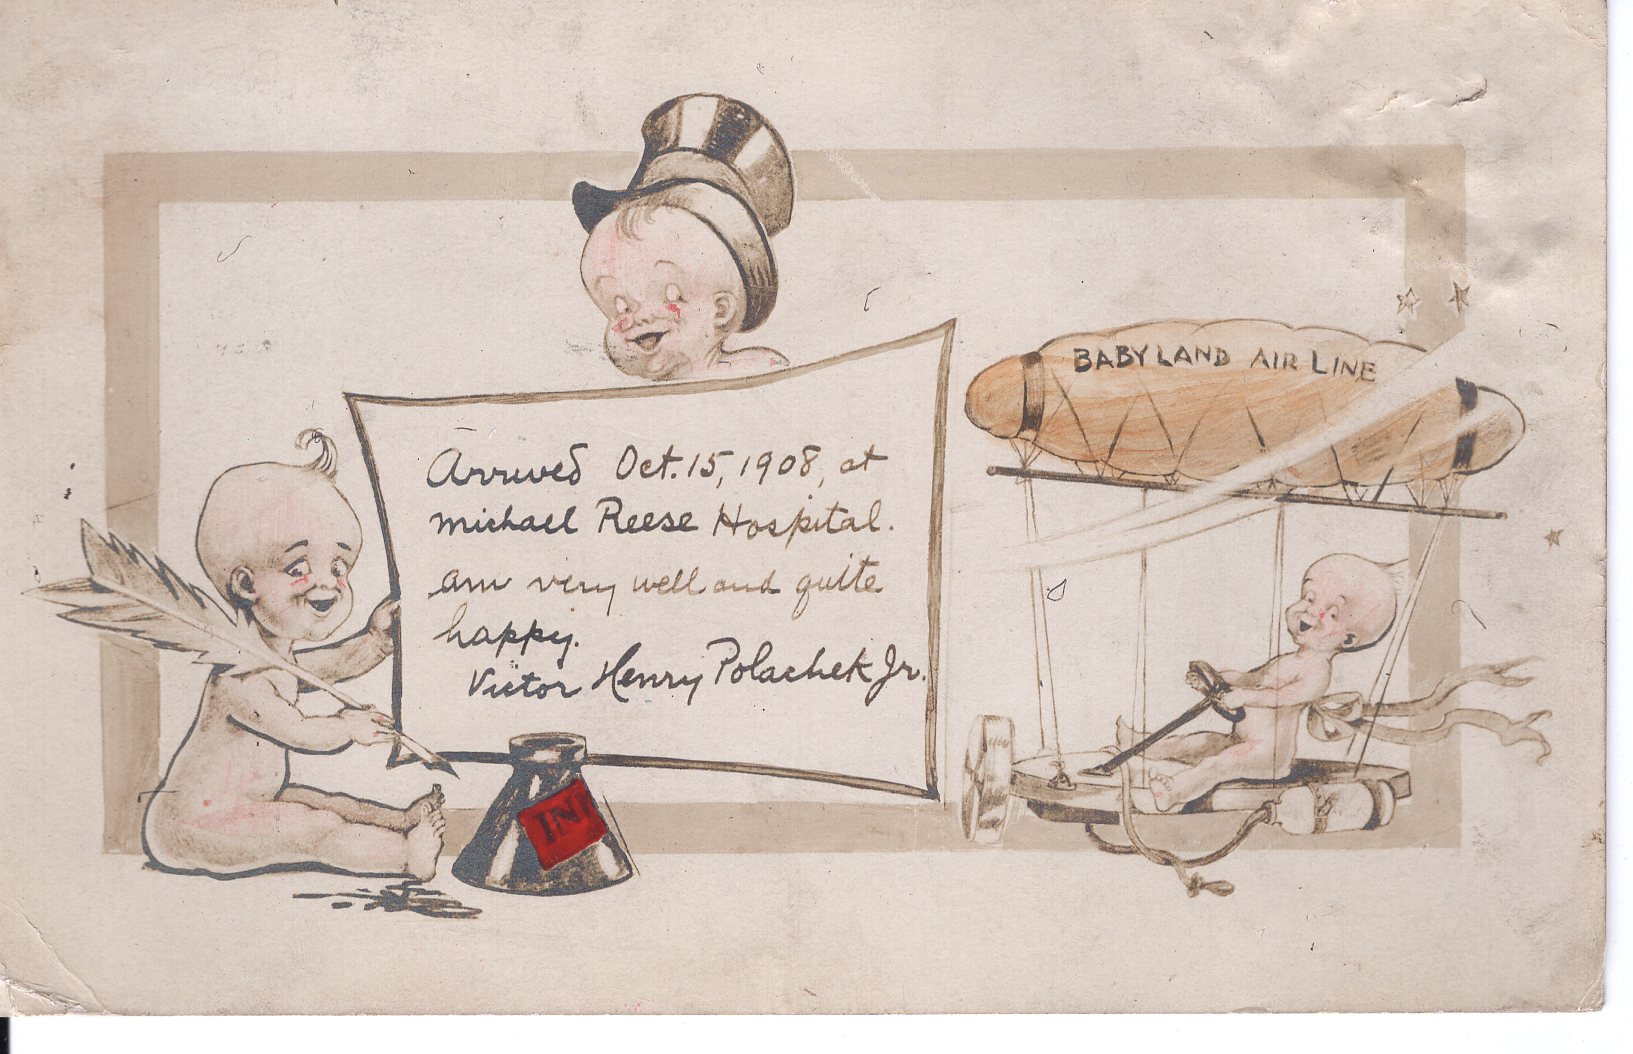 BABYLAND AIR LINE
Arrived Oct. 15, 1908, at
Michael Reese Hospital.
am very well and quite
happy.
Victor Henry Polachek Jr.
INK